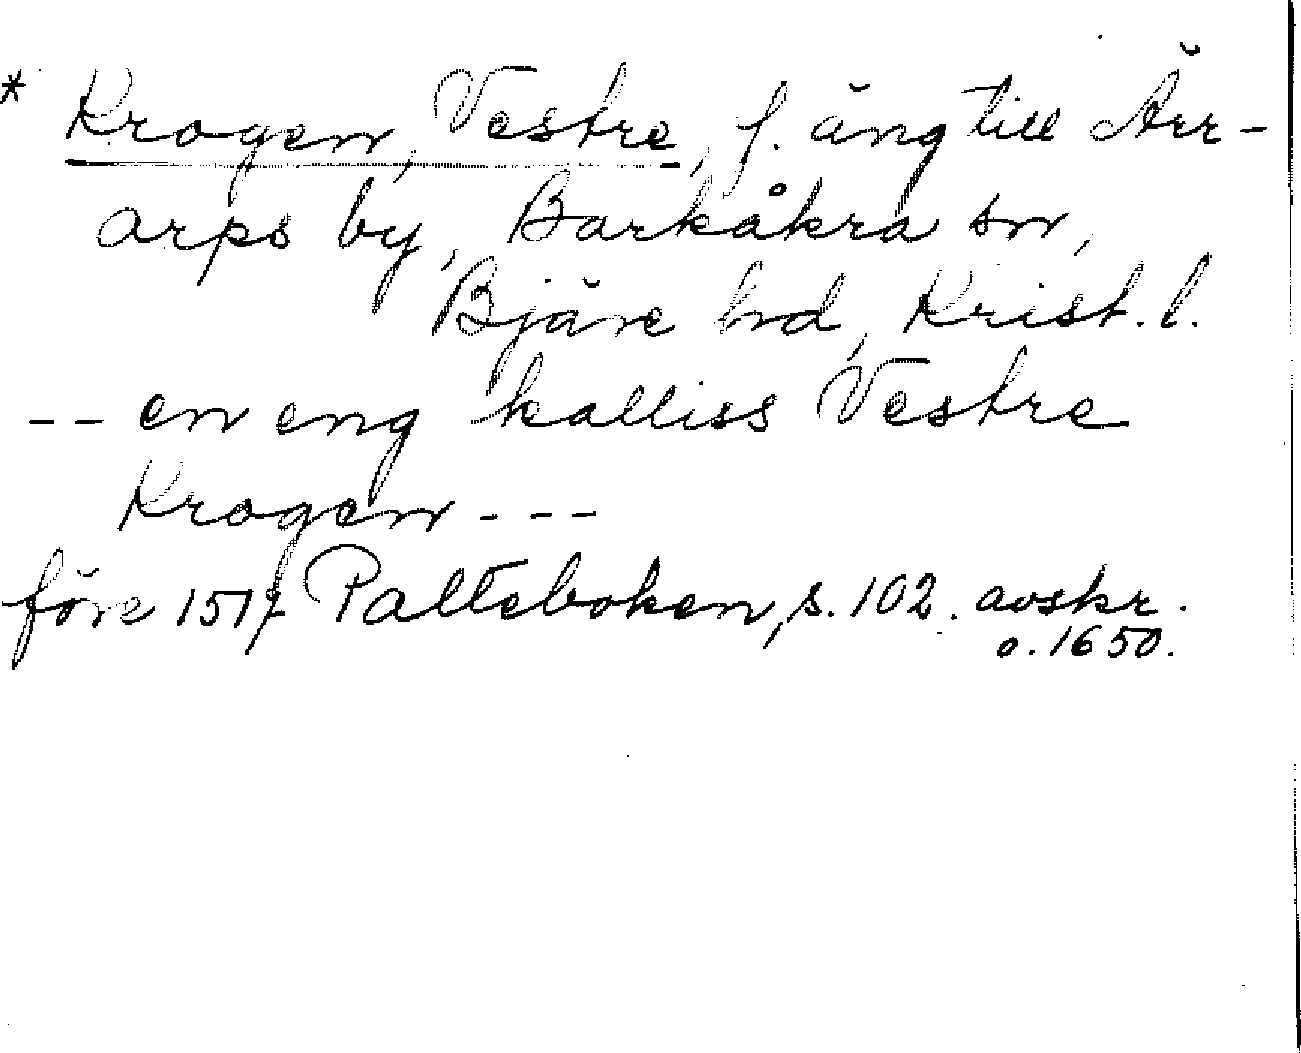 * Krogen, Vestre, f. äng till Ärr-
arps by, Barkåkra sn,
Bjäre hd, Krist. l.
-- en eng kalliss Vestre
Krogen ---
före 1517 Palteboken, s. 102. avskr.
o. 1650.